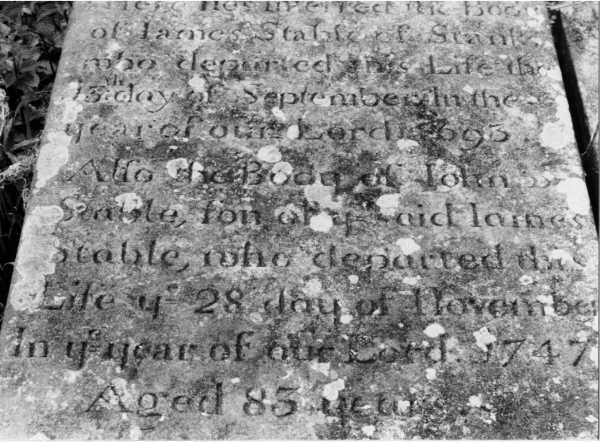 Here lies interred the Body
of Iames Stable of Stank
who departed this Life the
13th day of September In the
year of our Lord 1693
Also the Body of Iohn
Stable, son of ye said Iames
Stable, who departed this
Life ye 28 day of November
In ye year of our Lord 1747
Aged 83 years